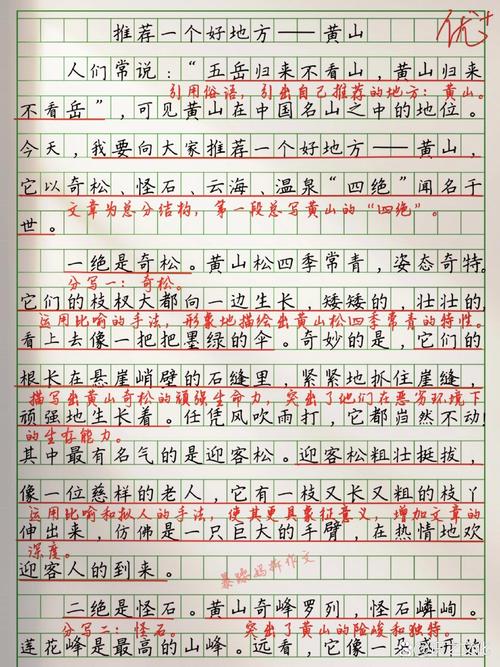 推荐一个好地方——黄山
优+
人们常说：“五岳归来不看山，黄山归来
引用俗语，引出自己推荐的地方：黄山。
不看岳”，可见黄山在中国名山之中的地位。
今天，我要向大家推荐一个好地方——黄山，
它以奇松、怪石、云海、温泉“四绝”闻名于
文章为总分结构，第一段总写黄山的“四绝”。
世。
一绝是奇松。黄山松四季常青，姿态奇特。
分写一：奇松。
它们的枝杈大都向一边生长，矮矮的，壮壮的，
运用比喻的手法，形象地描绘出黄山松四季常青的特性。
看上去像一把把墨绿的伞。奇妙的是，它们的
根长在悬崖峭壁的石缝里，紧紧地抓住崖缝，
描写出黄山奇松的顽强生命力，突出了他们在恶劣环境下
顽强地生长着。任凭风吹雨打，它都岿然不动！
的生存能力。
其中最有名气的是迎客松。迎客松粗壮挺拔，
像一位慈祥的老人，它有一枝又长又粗的枝丫
运用比喻和拟人的手法，使其更具象征意义，增加文章的
伸出来，仿佛是一只巨大的手臂，在热情地欢
深度。
迎客人的到来。
暴躁妈拆作文
二绝是怪石。黄山奇峰罗列，怪石嶙峋。
分写二：怪石。 突出了黄山的险峻和独特。
莲花峰是最高的山峰。远看，它像一朵盛开